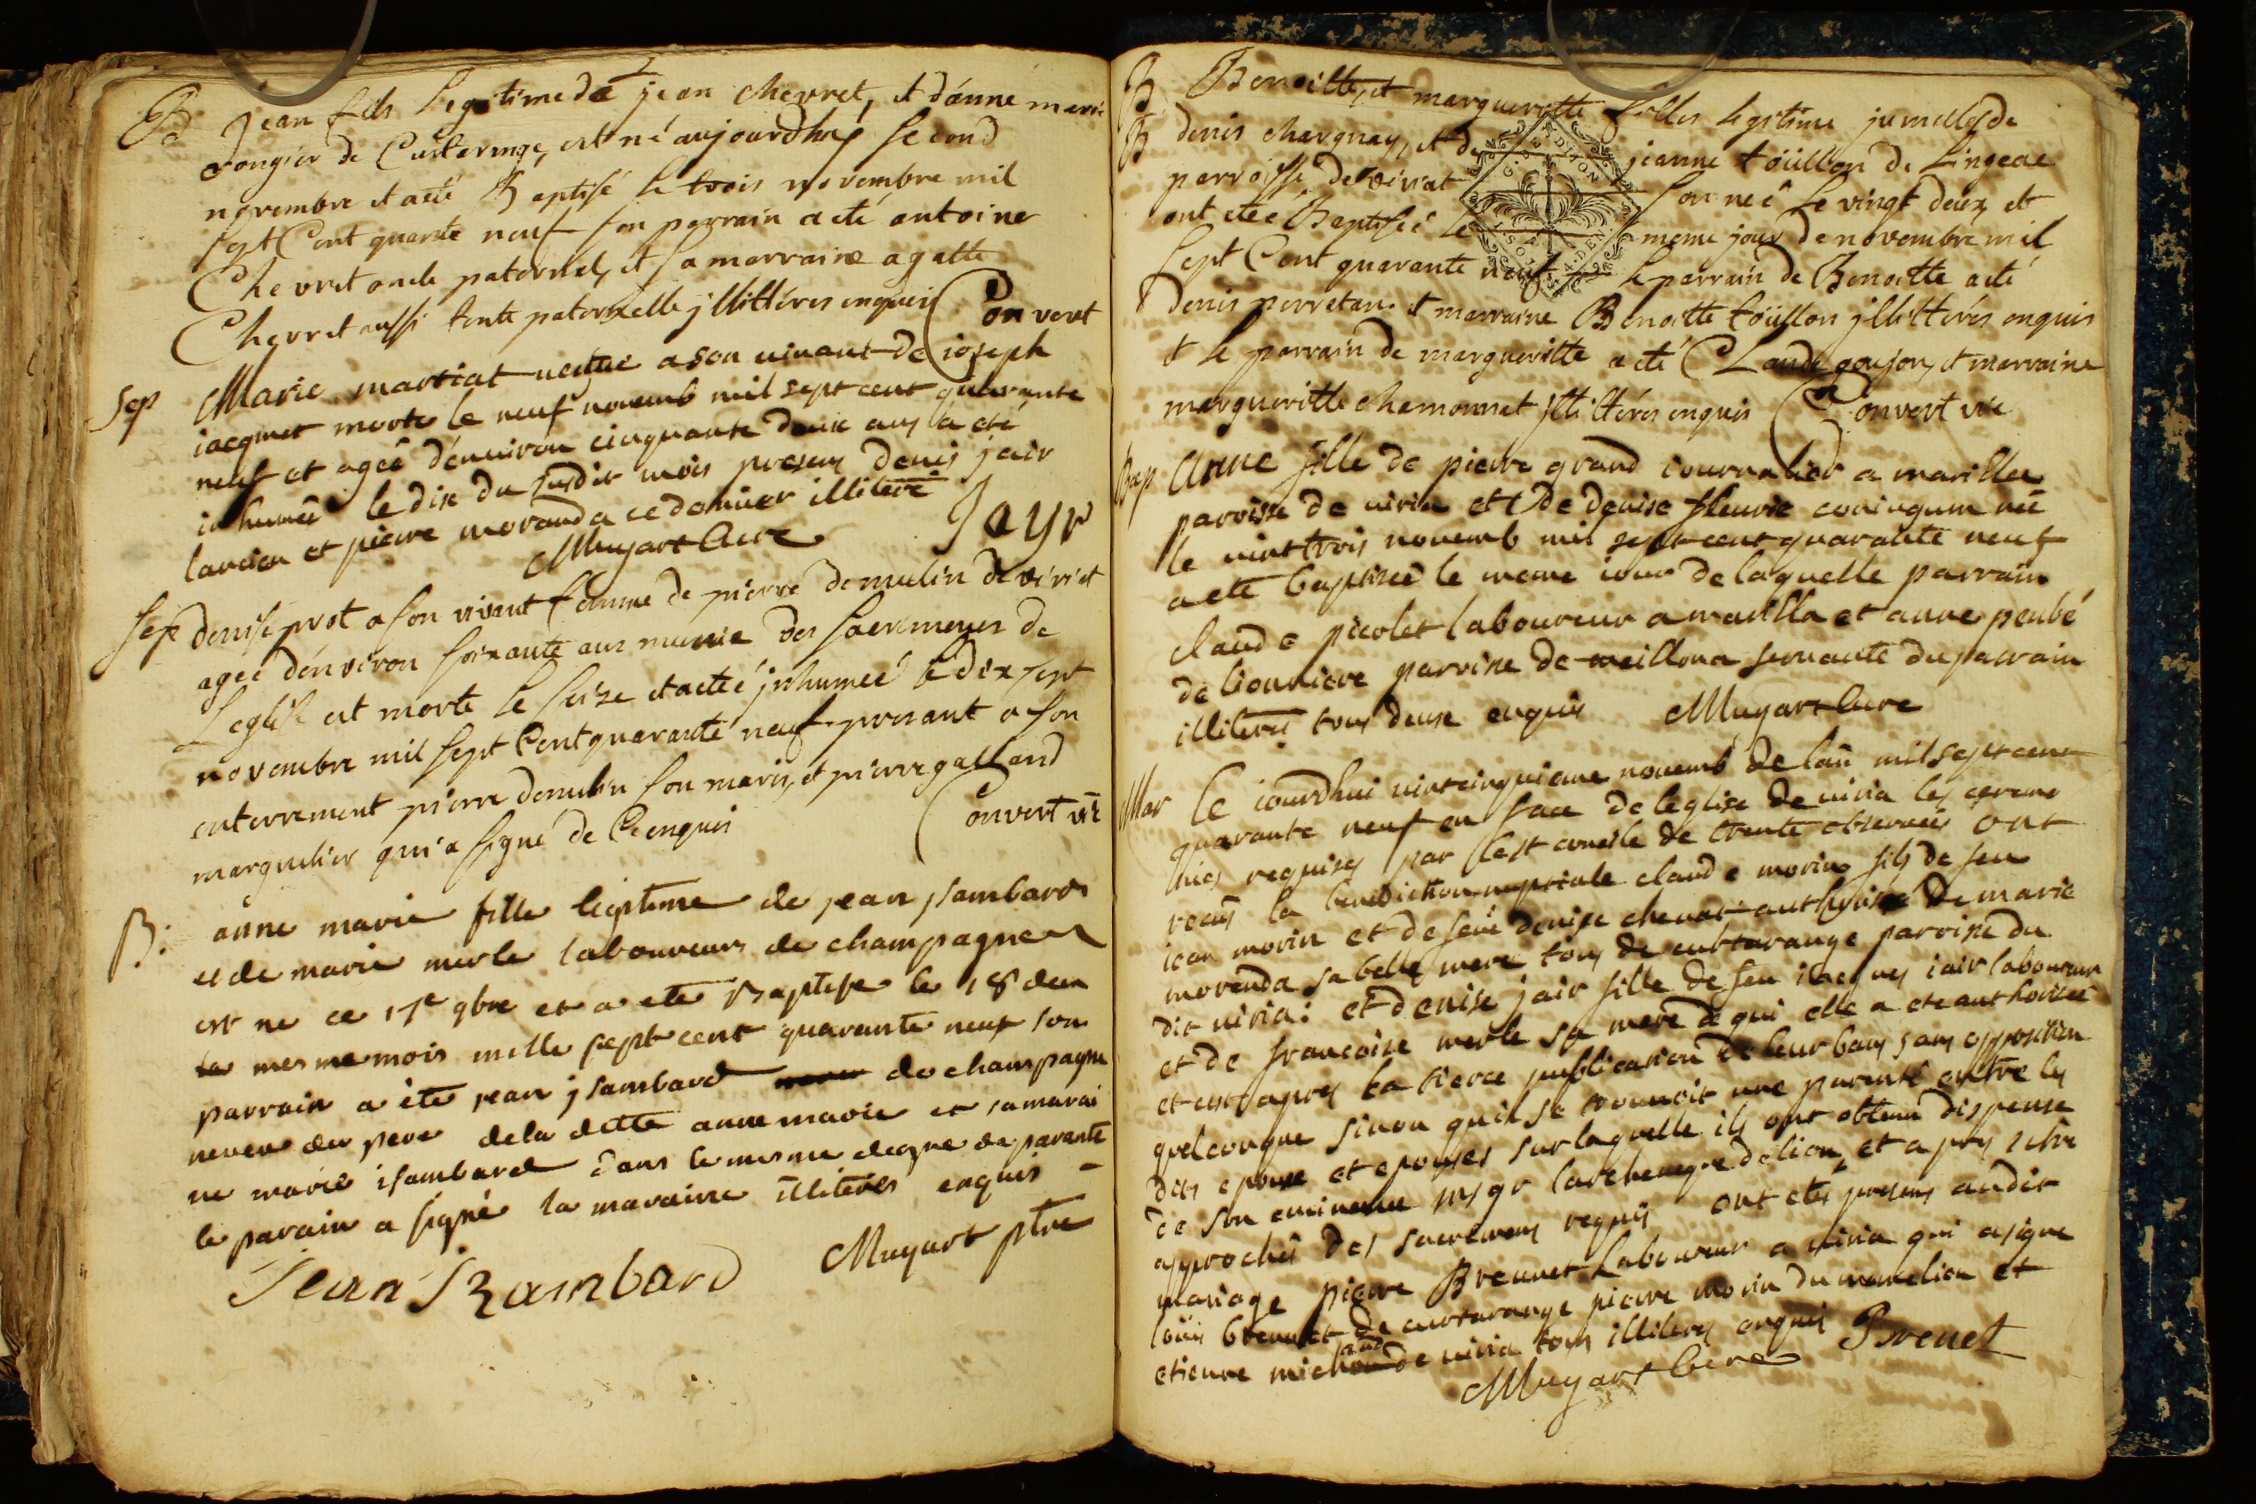 B Jean fils legitime de jean chevret, et d'anne marie
rongier de Curtaringe, est né aujourdhuy second
novembre et a eté Baptisé le trois novembre mil
sept Cent quarante neuf son parrain a eté antoine
Chevret oncle paternel, et sa marraine agatte
Chevret aussi tente paternelle jllittéres enquis Convert
sep Marie martiat veufue a son uiuant de joseph
jacquet morte le neuf nouemb mil sept cent quarante
neuf et agée d'enuiron cinquante deux ans la eté
inhumée le dix du susdit mois presens denis jair
lancien et pierre moranda ce dernier illiteré
Muyart Cure Jayr
sep denise prot a son vivant femme de pierre demulin de viriat
agée d'environ soixante ans munie des sacremens de
L'eglise est morte le seize et a eté jnhumeé le dix sept
novembre mil sept Cent quarante neuf present a son
enterrement pierre demulin son maris, et pierre galland
marguelier qui a signé de Ce enquis Convert vic
B: anne marie fille legitime de jean jsambard
et de marie merle laboureurs de champagne
est ne ce 17e 9bre et a ete Baptise le 18 du
mesme mois mille sept cent quarante neuf son
parrain a ète jean jsambard de champagne
neveu du pere de la ditte anne marie et sa marai
ne marie isambard dans le mesme degre de parante
le parain a signé la maraine illiteres enquis
Jean Isambard Muyart ptre
B Benoitte, et margueritte filles legitime jumelles de
B denis chargnay, et de jeanne toüillon de Lingeat
parroisse de viriat son neé le vingt deux, et
ont eteé Baptiseé le meme jour de novembre mil
sept Cent quarante neuf le parrain de Benoitte a eté
denis perretan et marraine Benoitte toüillon jllittérés enquis
et le parrain de margueritte a eté Claude goujon, et marraine
margueritte chamonnet jllittérés enquis Convert vic
Bap Anne fille de pierre grand journalier a marillia
paroisse de uiria et de denise fleurie conjugum né
le uint trois nouemb mil sept cent quarante neuf
a eté baptisée le meme iour de laquelle parrain
claude picolet laboureur a marillia et anne peubé
de lionniere paroisse de meillona seruante du parrain
illiteré tous deux enquis Muyart Cure
Mar Ce iourdhui uint cinquieme nouemb de lan mil sept cent
quarante neuf en face de leglise de uiria les ceremo
nies requises par le st concile de trente observées ont
receus la benediction nuptiale claude morin fils de feu
jean morin et de feüe denise chenat authorisé de marie
moranda sa belle mere tous de curtarange paroisse du
dit uiria: et denise jair fille de feu jacques jair laboureur
et de francoise merle sa mere de qui elle a ete authorisée
et ce apres la tierce publication de leur bans sans opposition
quelconque sinon quil se trouuoit une parenté entre les
dits epoux et epouses sur laquelle ils ont obtenu dispense
de son eminence msgr larcheueque de lion, et apres s'etre
approchés des sacremens requis ont etés presens audit
mariage pierre Breunet laboureur a uiria qui a signé
loüis breunet de curtarange pierre morin du memelion et
etienne michaud de uiria tous illiteres enquis Brenet
Muyart Cure